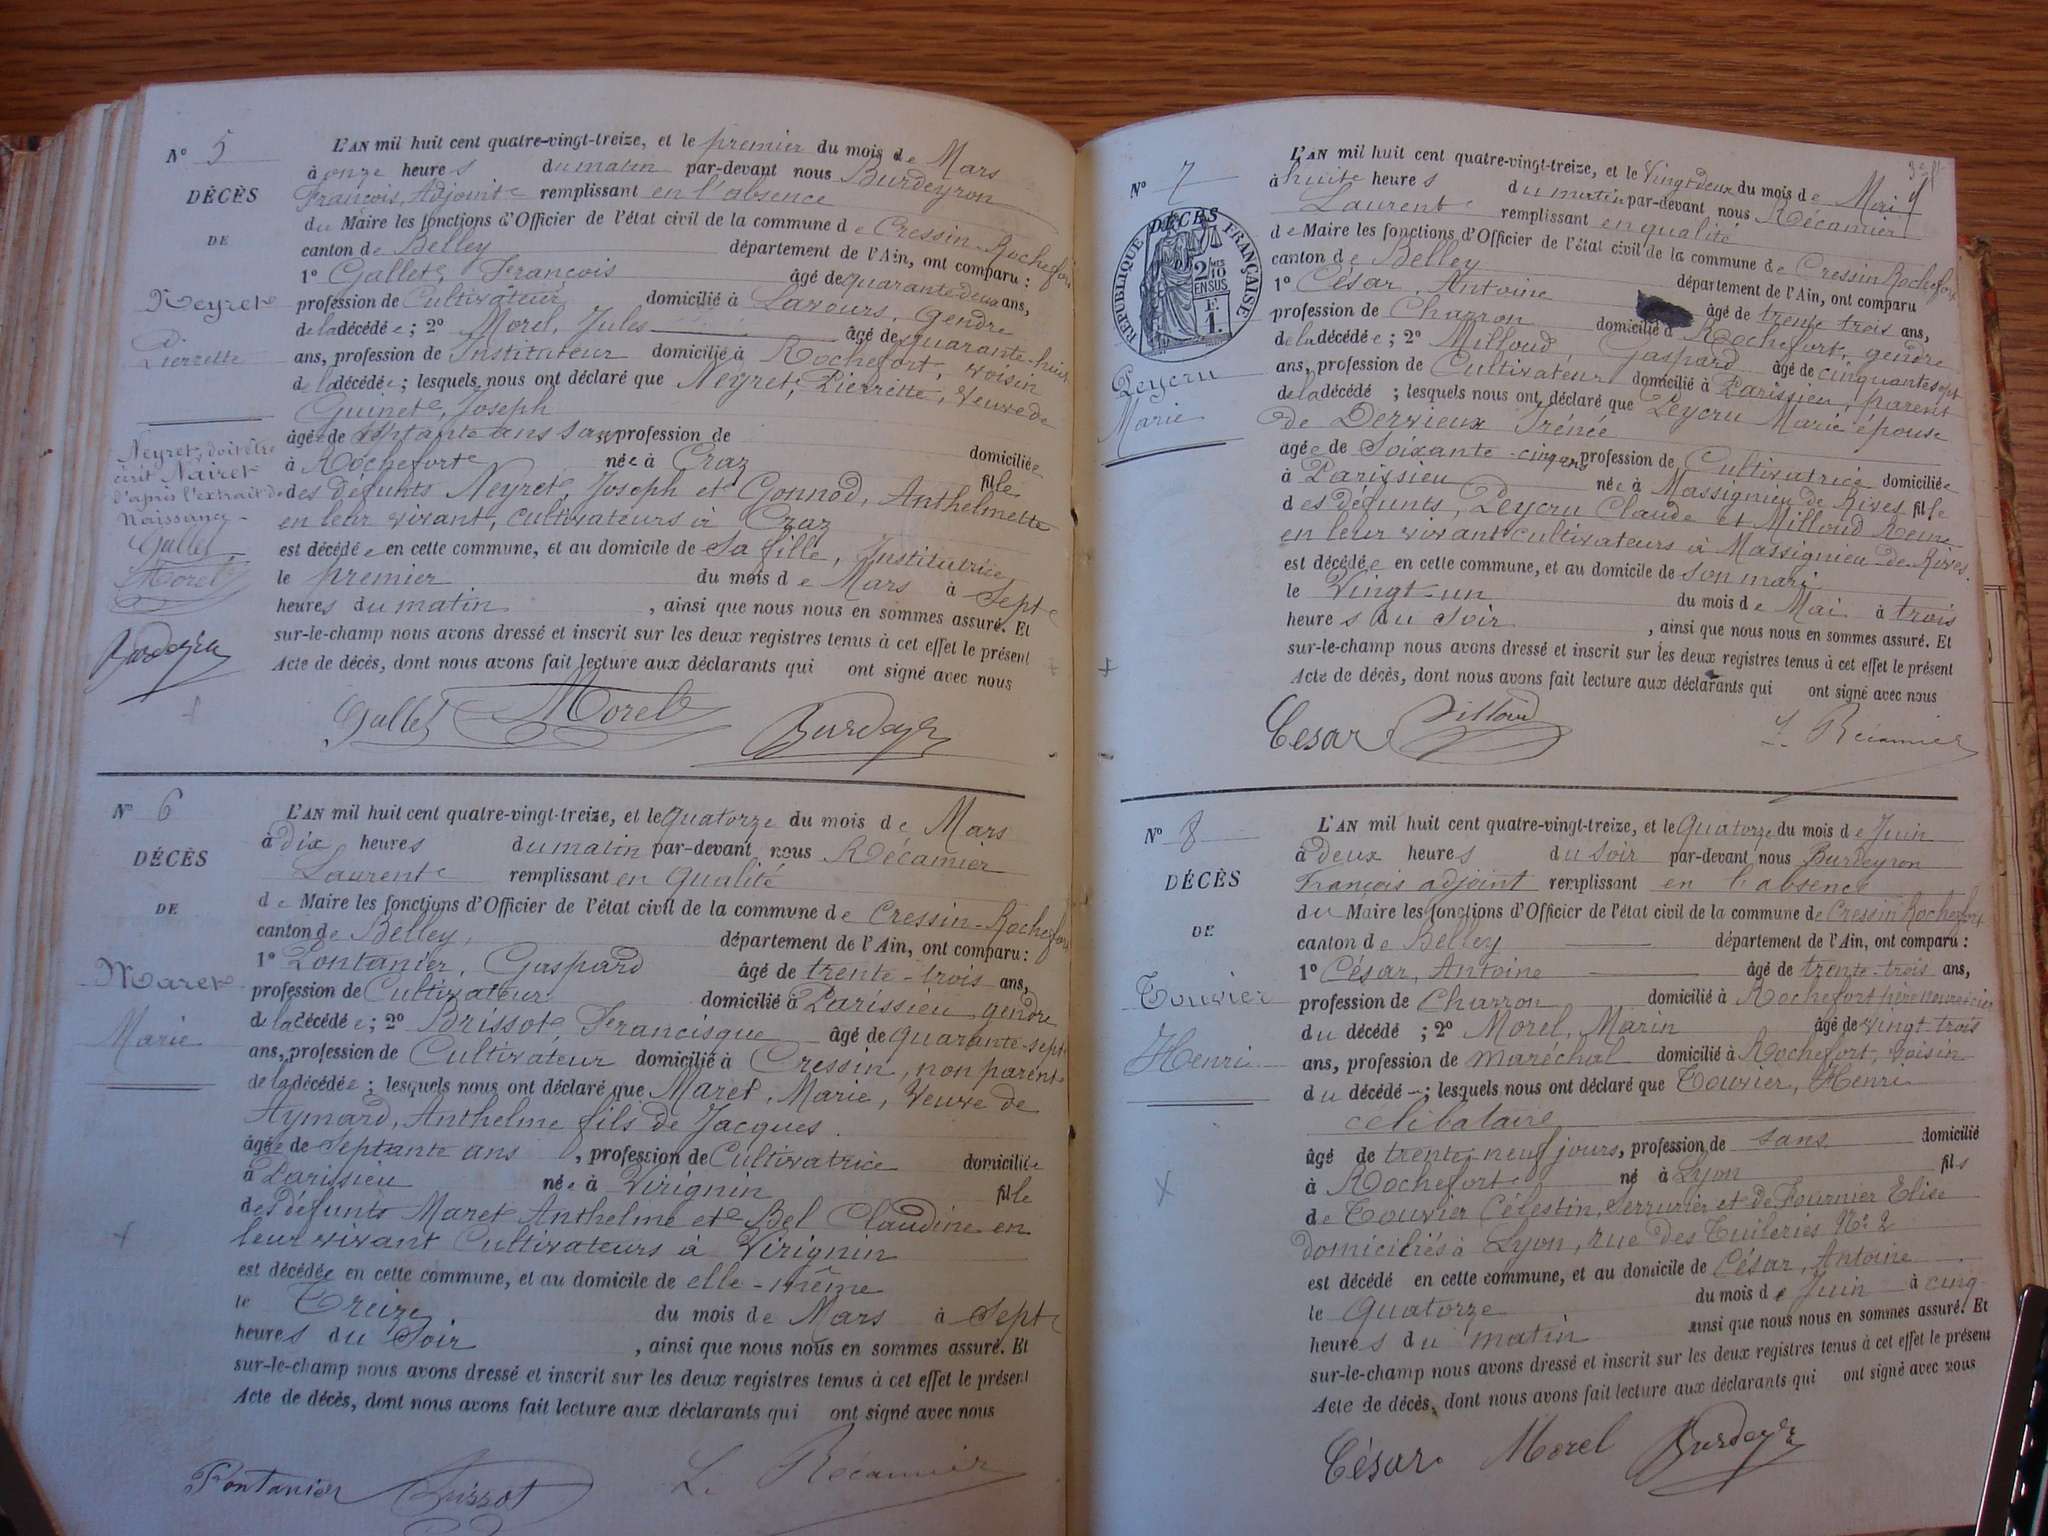 N° 5
DÉCÈS
DE
Neyret
Pierrette
Neyret, doit être
écrit Nairet
d'après l'extrait de
Naissance
Gallet
Morel
Burdeyron
L'AN mil huit cent quatre-vingt-treize, et le premier du mois de Mars
à onze heures du matin par-devant nous Burdeyron
François, Adjoint remplissant en l'absence
du Maire les fonctions d'Officier de l'état civil de la commune de Cressin-Rochefort
canton de Belley département de l'Ain, ont comparu :
1° Gallet, François âgé de quarante deux ans,
profession de Cultivateur domicilié à Lavours, gendre
de la décédée ; 2° Morel, Jules âgé de quarante-huit
ans, profession de Instituteur domicilié à Rochefort, voisin
de la décédée ; lesquels nous ont déclaré que Neyret, Pierrette, veuve de
Guinet, Joseph
âgée de septante ans sans profession de domiciliée
à Rochefort née à Craz fille
des défunts Neyret, Joseph et Gonnod, Anthelmette
en leur vivant, cultivateurs à Craz
est décédée en cette commune, et au domicile de sa fille, Institutrice
le premier du mois de Mars à Sept
heures du matin , ainsi que nous nous en sommes assuré. Et
sur-le-champ nous avons dressé et inscrit sur les deux registres tenus à cet effet le présent
Acte de décès, dont nous avons fait lecture aux déclarants qui ont signé avec nous
Gallet Morel Burdeyron
N° 6
DÉCÈS
DE
Maret
Marie
L'AN mil huit cent quatre-vingt-treize, et le quatorze du mois de Mars
à dix heures du matin par-devant nous Récamier
Laurent remplissant en qualité
de Maire les fonctions d'Officier de l'état civil de la commune de Cressin-Rochefort
canton de Belley, département de l'Ain, ont comparu :
1° Pontanier, Gaspard âgé de trente-trois ans,
profession de Cultivateur domicilié à Parissieu, gendre
de la décédée ; 2° Brissot, Francisque âgé de quarante-sept
ans, profession de Cultivateur domicilié à Cressin, non parent
de la décédée ; lesquels nous ont déclaré que Maret, Marie, veuve de
Aymard, Anthelme fils de Jacques
âgée de Septante ans , profession de Cultivatrice domiciliée
à Parissieu née à Virignin fille
des défunts Maret Anthelme et Bel Claudine en
leur vivant Cultivateurs à Virignin
est décédée en cette commune, et au domicile de elle-même
le Treize du mois de Mars à Sept
heures du Soir , ainsi que nous nous en sommes assuré. Et
sur-le-champ nous avons dressé et inscrit sur les deux registres tenus à cet effet le présent
Acte de décès, dont nous avons fait lecture aux déclarants qui ont signé avec nous
Pontanier Brissot L. Récamier
N° 7
RÉPUBLIQUE FRANÇAISE
DÉCÈS
DE
2 MES
10
EN SUS
Peycru
Marie
L'AN mil huit cent quatre-vingt-treize, et le Vingt deux du mois de Mai
à huit heures du matin par-devant nous Récamier
Laurent remplissant en qualité
de Maire les fonctions d'Officier de l'état civil de la commune de Cressin Rochefort
canton de Belley département de l'Ain, ont comparu
1° César, Antoine âgé de trente trois ans,
profession de Charron domicilié à Rochefort, gendre
de la décédée ; 2° Milloud Gaspard âgé de cinquante sept
ans, profession de Cultivateur domicilié à Parissieu, parent
de la décédé ; lesquels nous ont déclaré que Peycru Marie épouse
de Dervieux Irénée
agée de Soixante-cinq ans profession de Cultivatrice domiciliée
à Parissieu née à Massignieu de Rives fille
des défunts, Peycru Claude et Milloud Reine
en leur vivant cultivateurs à Massignieu de Rives.
est décédée en cette commune, et au domicile de son mari
le Vingt-un du mois de Mai à trois
heures du soir , ainsi que nous nous en sommes assuré. Et
sur-le-champ nous avons dressé et inscrit sur les deux registres tenus à cet effet le présent
Acte de décès, dont nous avons fait lecture aux déclarants qui ont signé avec nous
Cesar Milloud L. Récamier
N° 8
DÉCÈS
DE
Touvier
Henri
L'AN mil huit cent quatre-vingt-treize, et le Quatorze du mois de Juin
à deux heures du soir par-devant nous Burdeyron
François adjoint remplissant en l'absence
du Maire les fonctions d'Officier de l'état civil de la commune de Cressin Rochefort
canton de Belley département de l'Ain, ont comparu :
1° César, Antoine âgé de trente-trois ans,
profession de Charron domicilié à Rochefort père nourricier
du décédé ; 2° Morel, Marin âgé de vingt-trois
ans, profession de maréchal domicilié à Rochefort, voisin
du décédé ; lesquels nous ont déclaré que Touvier, Henri
célibataire
âgé de trente-neuf jours, profession de sans domicilié
à Rochefort né à Lyon fils
de Touvier Célestin, Serrurier et de Fournier Elise
domiciliés à Lyon, rue des Tuileries N° 2
est décédé en cette commune, et au domicile de César, Antoine
le Quatorze du mois de Juin à cinq
heures du matin ainsi que nous nous en sommes assuré. Et
sur-le-champ nous avons dressé et inscrit sur les deux registres tenus à cet effet le présent
Acte de décès, dont nous avons fait lecture aux déclarants qui ont signé avec nous
César Morel Burdeyron